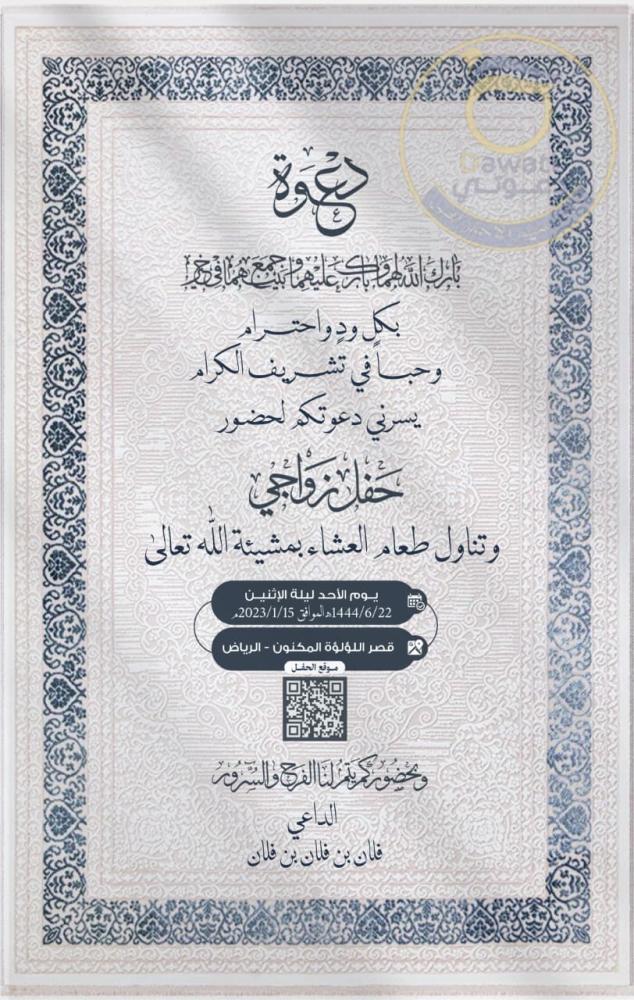 Dawati
دعوتي
دعوة
بارك الله لهما وبارك عليهما وجمع بينهما في خير
بكل ودٍ واحترام
وحباً في تشريف الكرام
يسرني دعوتكم لحضور
حفل زواجي
وتناول طعام العشاء بمشيئة الله تعالى
يوم الأحد ليلة الإثنين
1444/6/22هـ الموافق 2023/1/15م
قصر اللؤلؤة المكنون - الرياض
موقع الحفل
وبحضوركم يتم لنا الفرح والسرور
الداعي
فلان بن فلان بن فلان